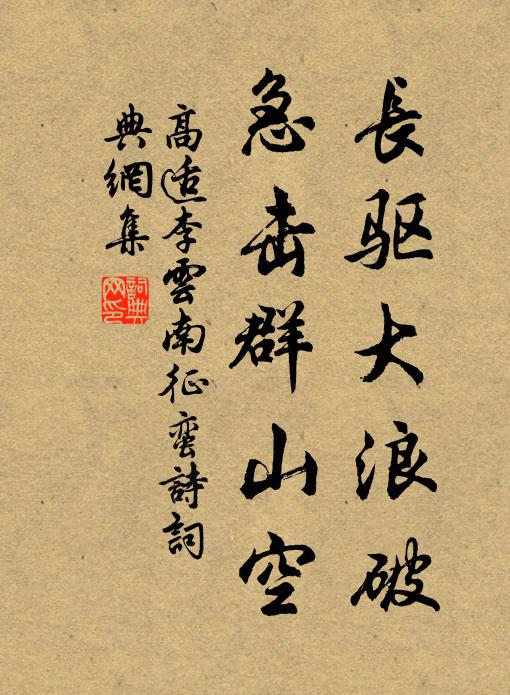 長驱大浪破
急击群山空
高适李雲南征蛮詩詞
典網集
詞典
网印